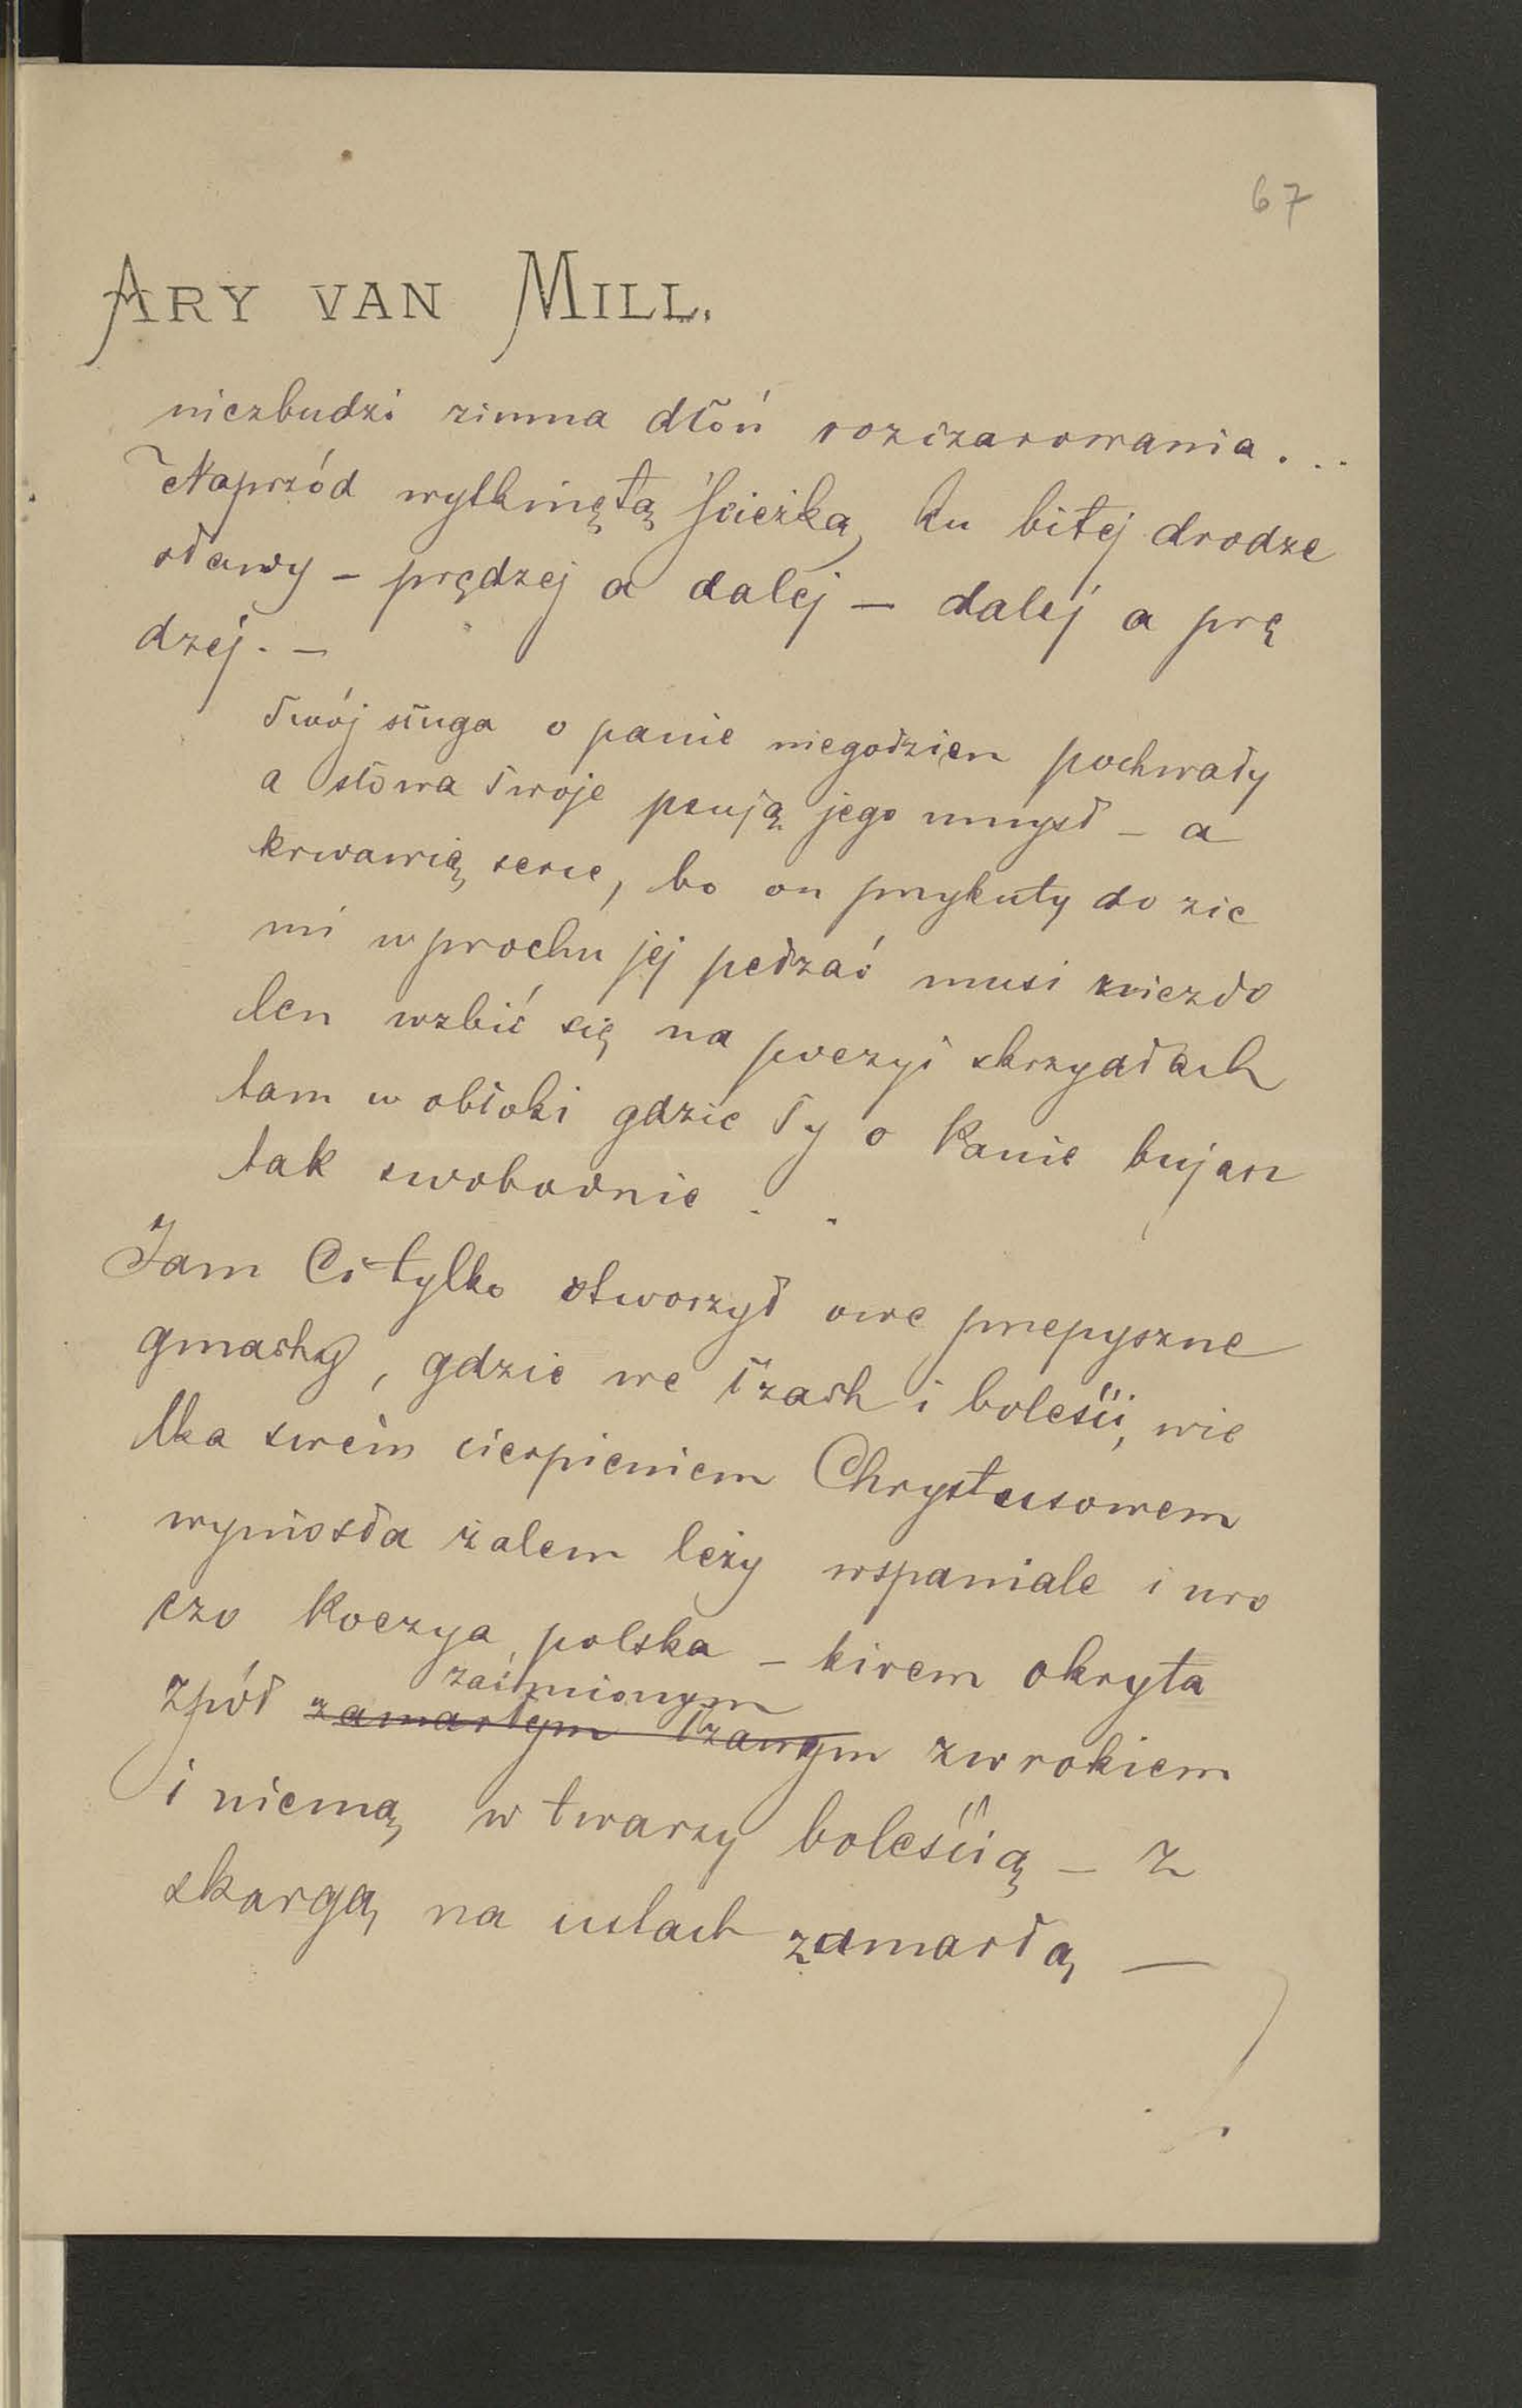 67
ARY VAN MILL.
niezbudzi zimna dłoń rozczarowania...
Naprzód wytkniętą ścieżką ku bitej drodze
sławy – prędzej a dalej – dalej a prę
dzej. –
Twój sługa o panie niegodzien pochwały
a słowa Twoje psują jego umysł – a
krwawią serce, bo on przykuty do zie
mi w prochu jej pełzać musi niezdo
len wzbić się na poezyi skrzydłach
tam w obłoki gdzie Ty o Panie bujasz
tak swobodnie . .
Jam Ci tylko otworzył owe przepyszne
gmachy, gdzie we łzach i boleści, wie
lka swem cierpieniem Chrystusowem
wyniosła żalem leży wspaniale i uro
czo Poezya polska – kirem okryta
zaćmionym
z pół zamarłym łzawym zwrokiem
i niemą w twarzy boleścią – z
skargą na ustach zamarłą –